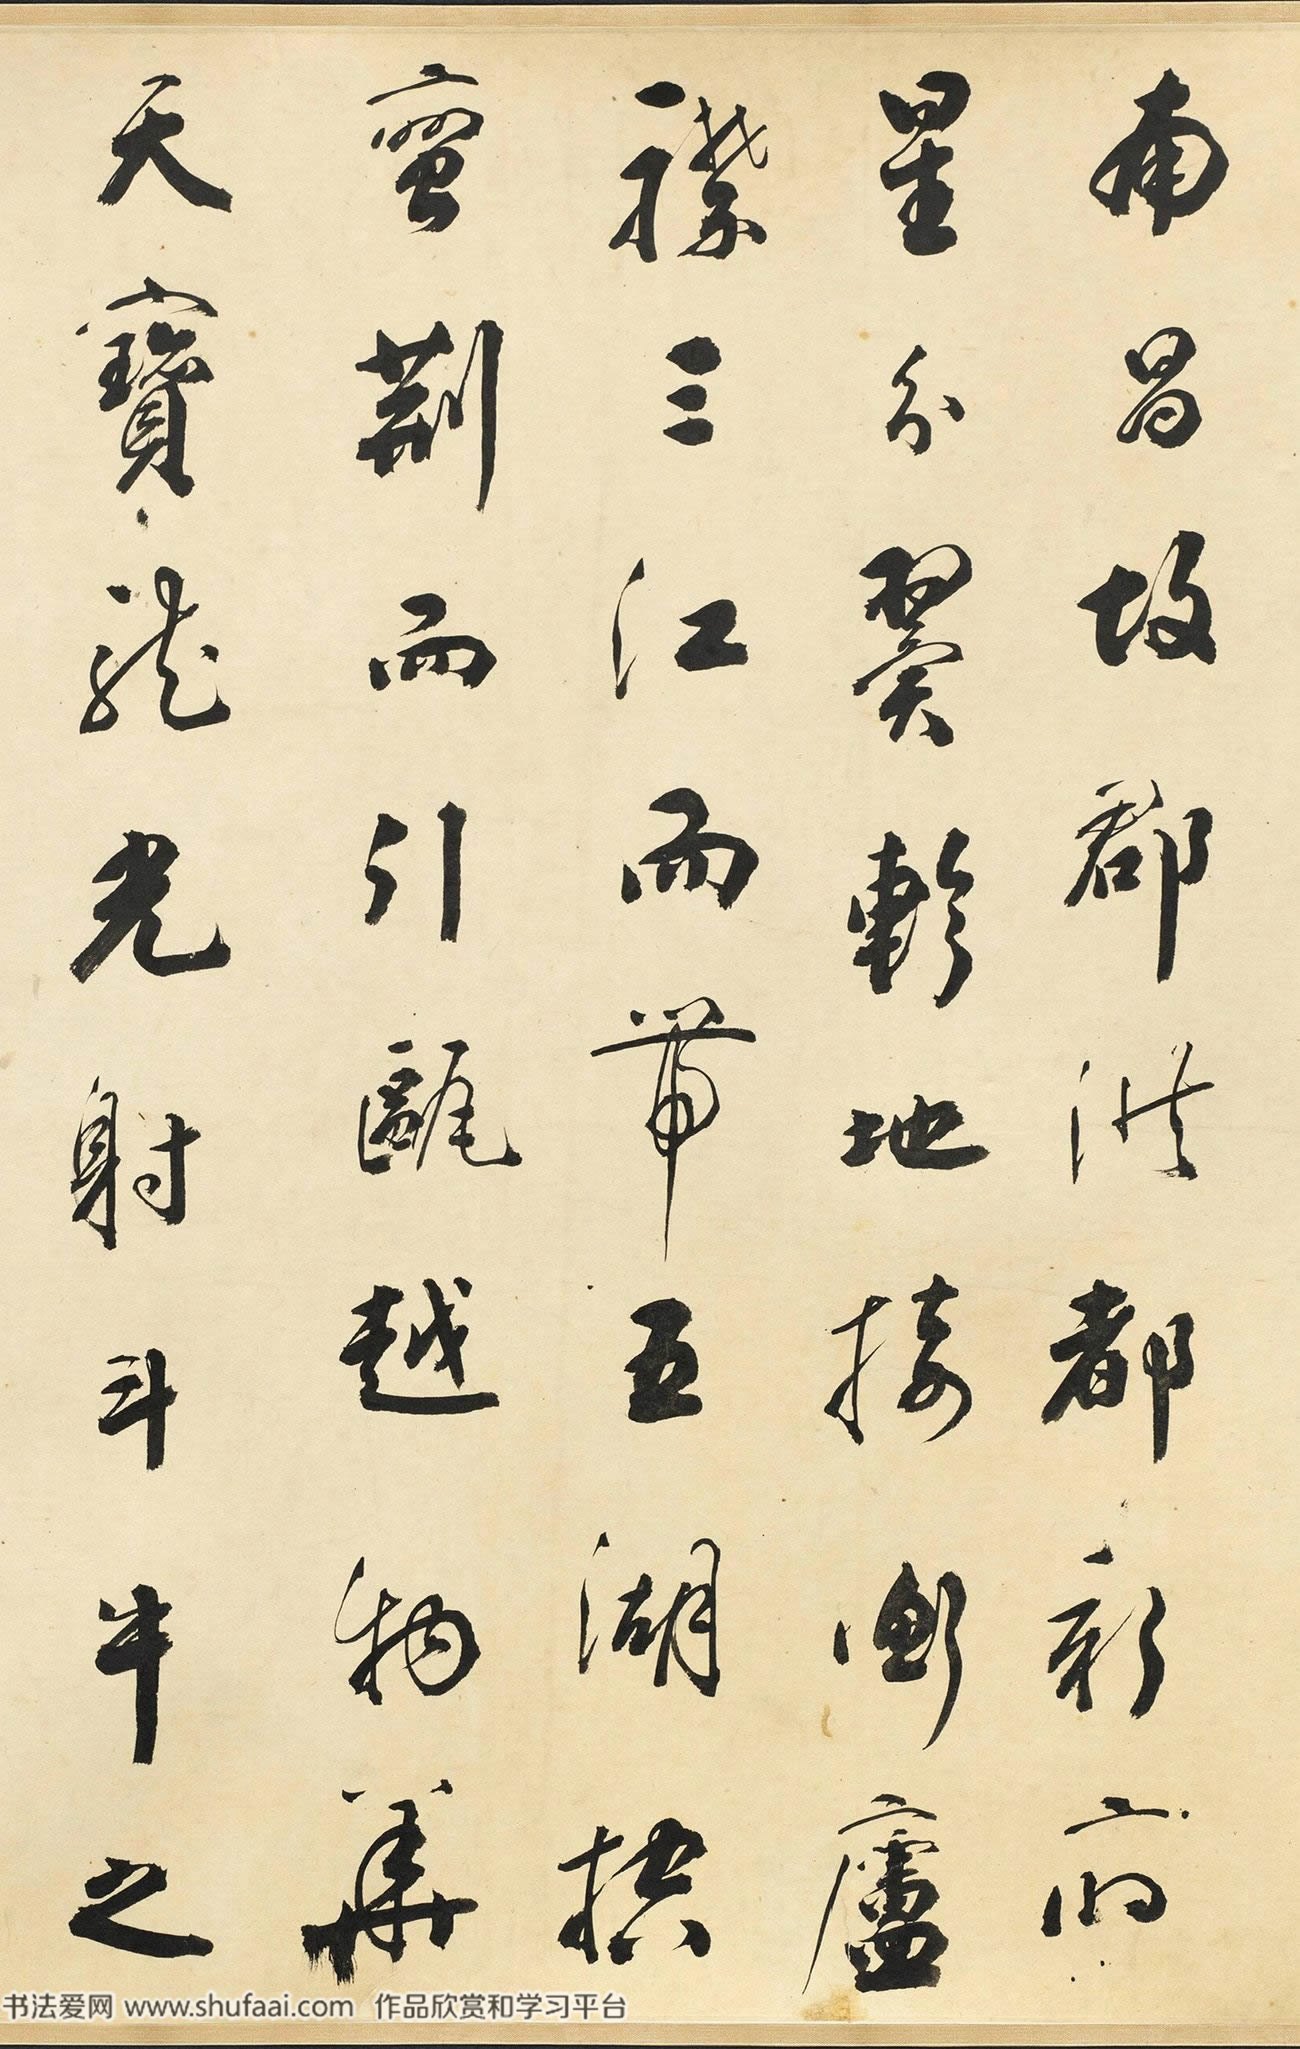 南昌故郡洪都新府
星分翼軫地接衡廬
襟三江而帶五湖控
蠻荆而引甌越物華
天寶龍光射斗牛之
书法爱网 www.shufaai.com 作品欣赏和学习平台